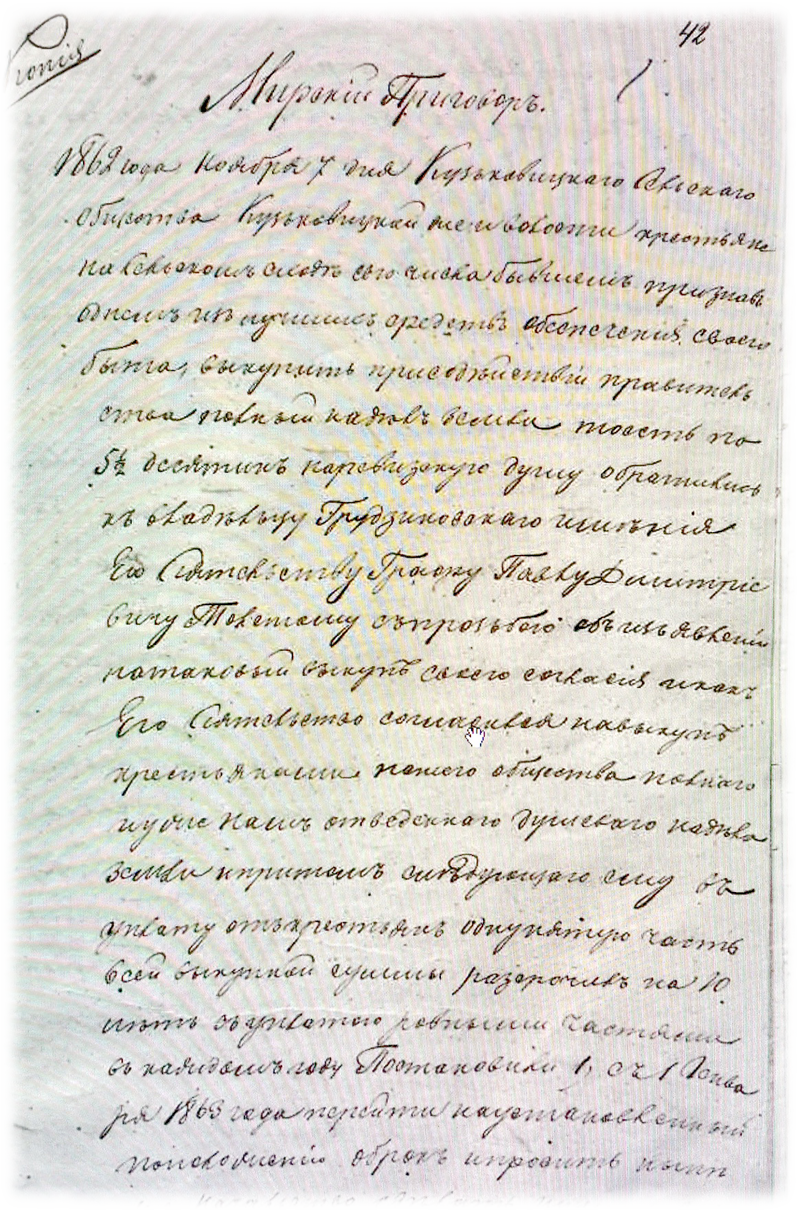 42
Копія
Мирскій Приговоръ.
1862 года Ноября 7 дня Кузьковицкаго Сельскаго
общества Кузьковицкой же и волости крестьяне
на Сельскомъ сходѣ сего числа бывшемъ признавъ
однимъ изъ лучшихъ средствъ обеспеченія своего
быта, выкупить присодѣйствіи правитель
ства полный надѣлъ земли тоесть по
5½ десятинъ наревизскую душу обратились
къ владѣльцу Грудзиновскаго имѣнія
Его Сіятельству Графу Павлу Дмитріе
вичу Толстому съпрозьбою объ изъявленіи
натаковый выкупъ своего согласія и какъ
Его Сіятельство согласился навыкупъ
крестьянами нашего общества полнаго
иуже намъ отведеннаго душеваго надѣла
земли ипритомъ слѣдующаго ему въ
уплату откъкрестьянъ однупятую часть
всей выкупной суммы разсрочилъ на 10
лѣтъ съуплатою ровными частями
въ каждомъ году Постановили 1, съ 1 Генва
ря 1863 года перейти наустановленный
положеніи оброкъ ипросить